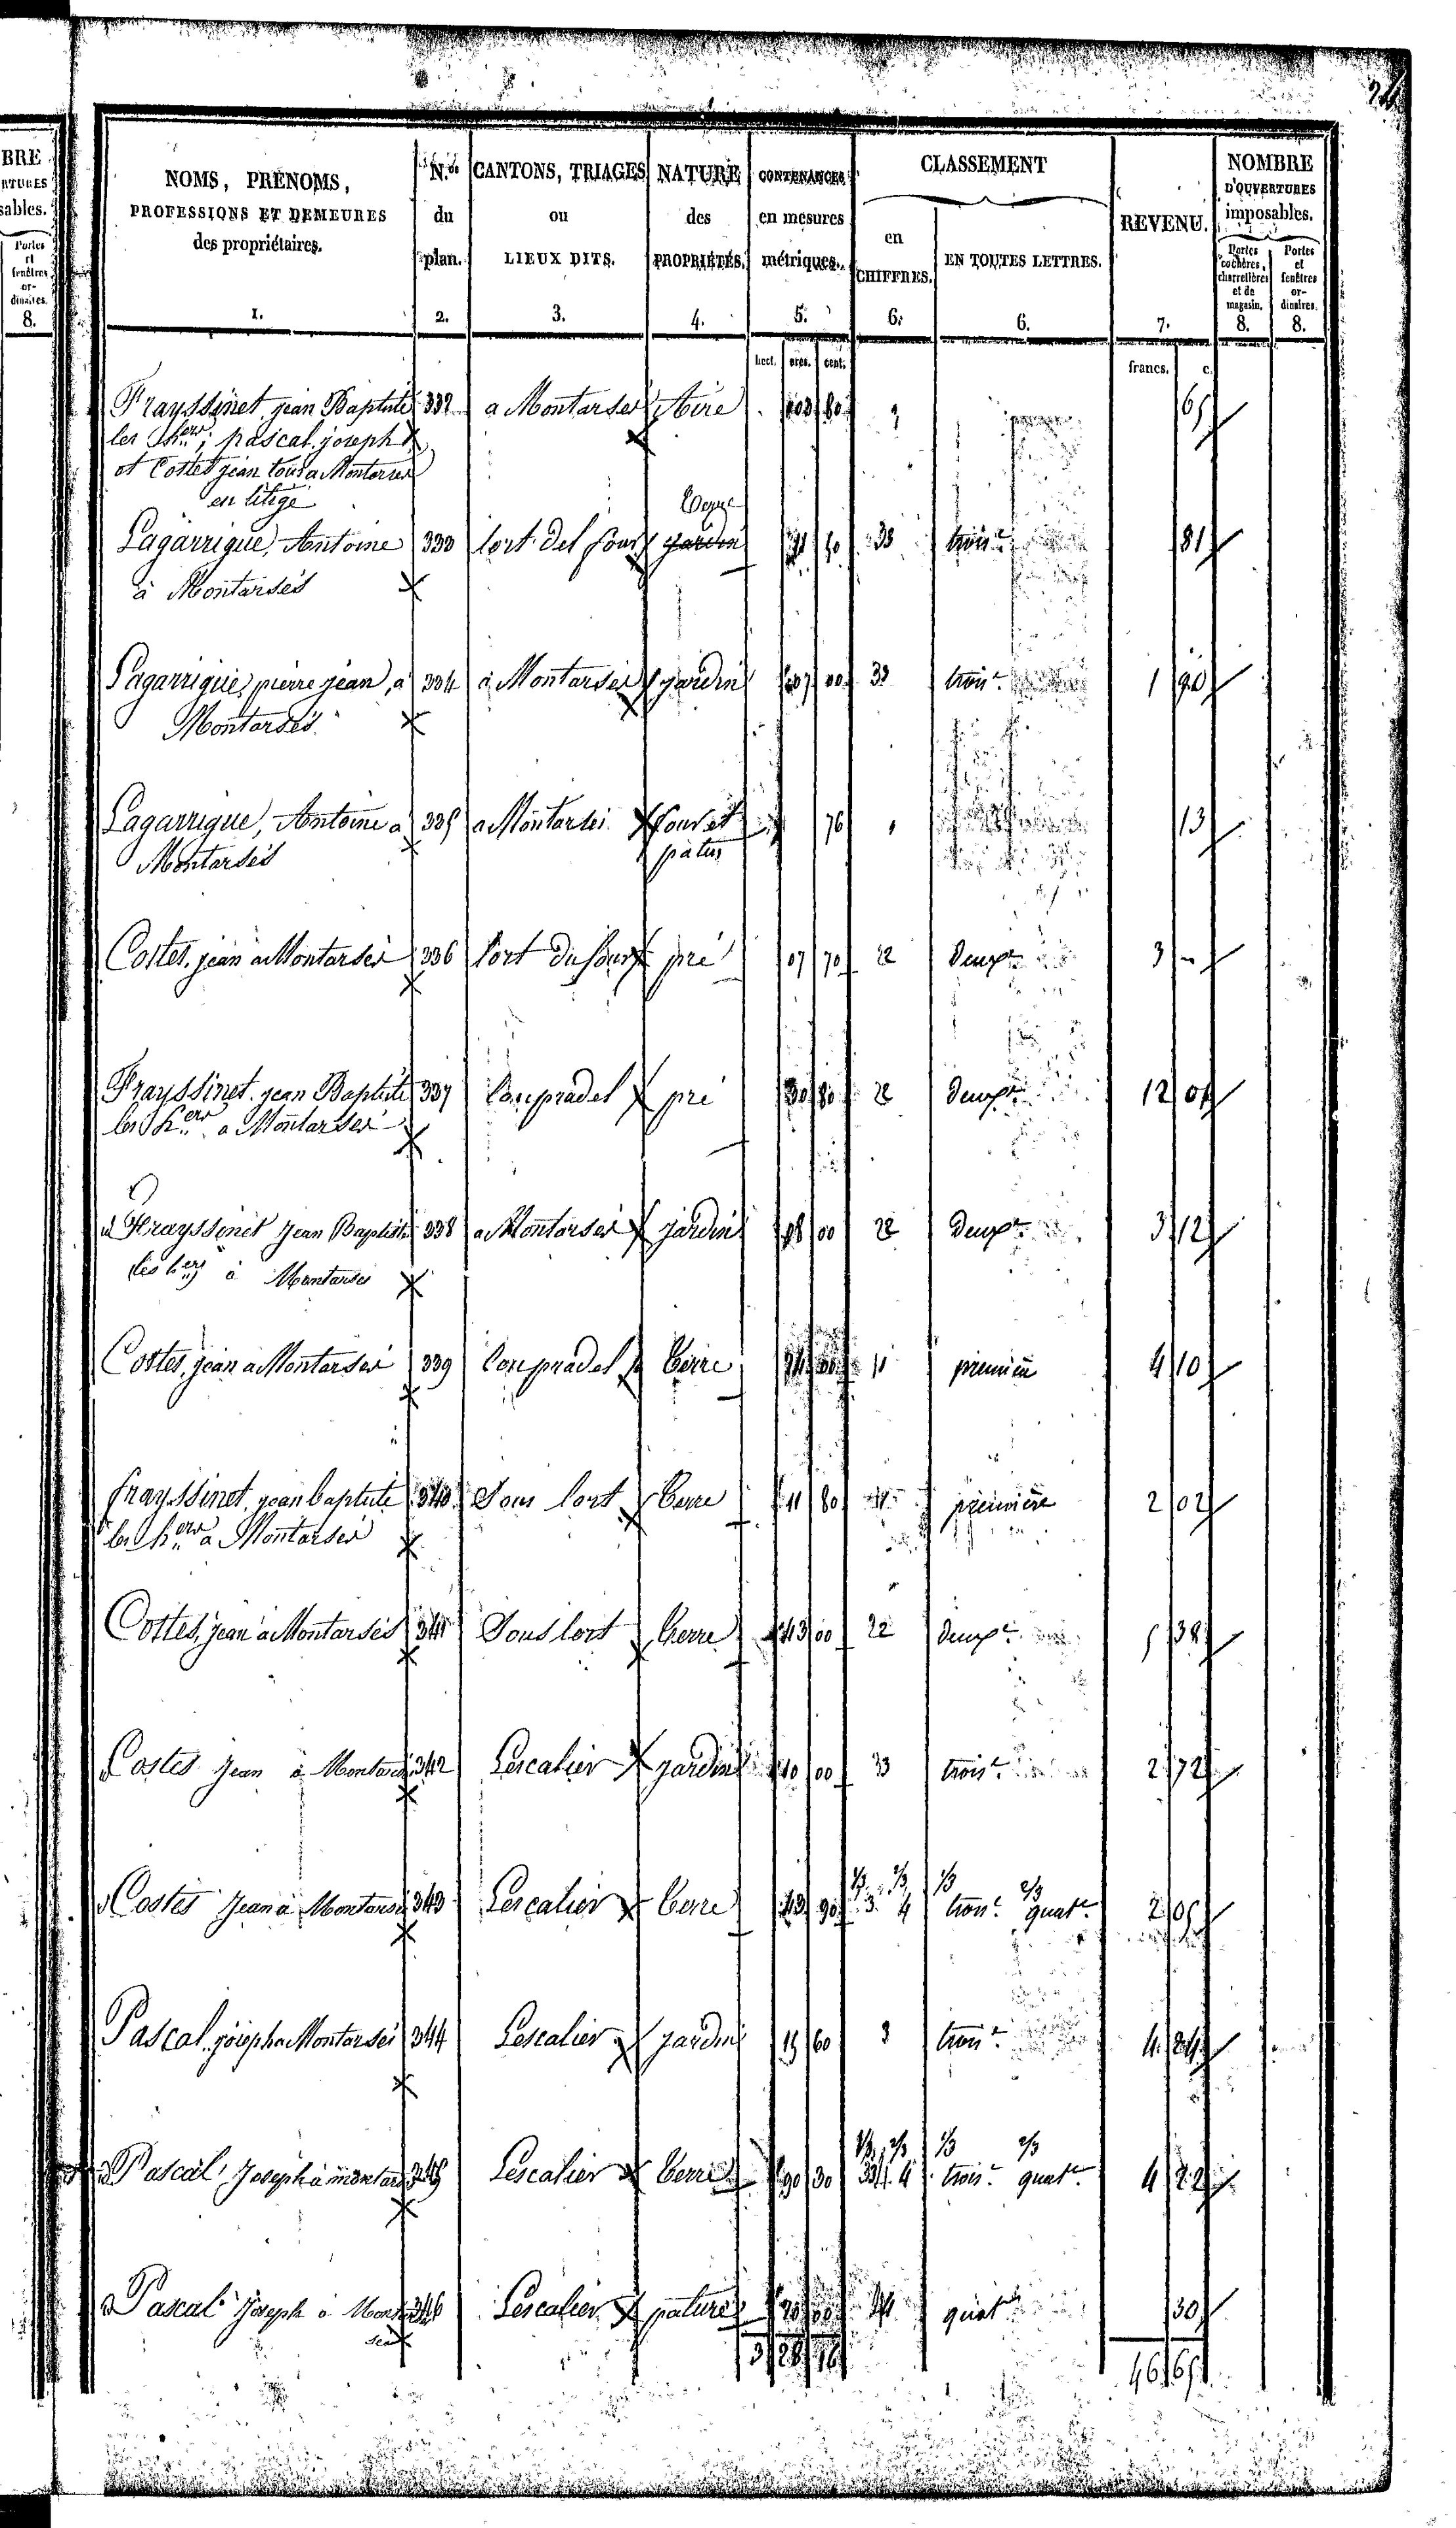 24
BRE
RTURES
sables.
Portes
et
fenêtres
or-
dinaires.
8.
NOMS, PRÉNOMS,
PROFESSIONS ET DEMEURES
des propriétaires.
1.
N.os
du
plan.
2.
CANTONS, TRIAGES
ou
LIEUX DITS.
3.
NATURE
des
PROPRIÉTÉS.
4.
CONTENANCES
en mesures
métriques.
5.
CLASSEMENT
en
CHIFFRES.
6.
EN TOUTES LETTRES.
6.
REVENU.
7.
NOMBRE
D'OUVERTURES
imposables.
Portes
cochères,
charretières
et de
magasin.
8.
Portes
et
fenêtres
or-
dinaires.
8.
hect. ares. cent.
francs. c.
Frayssinet, jean Baptiste 332 a Montarsés Aire 03 80 " 65
les h.ers, pascal joseph
et Costes jean tous a Montarses
en litige
Terre
Lagarrigue, Antoine 333 lort del four jardin 50 33 trois.e 81
à Montarsés
Lagarrigue, pierre jean, a 334 a Montarsés jardin 07 00 33 trois.e 1 90
Montarsés
Lagarrigue, Antoine a 335 a Montarsés four et 76 " 13
Montarsés patus
Costes, jean a Montarsés 336 lort du four pré 07 70 22 deux.e 3 "
Frayssinet, jean Baptiste 337 Loupradel pré 30 80 22 deux.e 12 01
les h.ers a Montarsés
d Frayssinet Jean Baptiste 338 a Montarsés jardin 08 00 22 deux.e 3 12
les h.ers à Montarses
Costes, jean a Montarsés 339 Loupradel terre 24 00 11 première 4 10
frayssinet, jean baptiste 340 Sous lort terre 11 80 11 première 2 02
les h.ers a Montarsés
Costes, jean a Montarsés 341 Sous lort terre 43 00 22 deux.e 5 38
Costes Jean à Montarses 342 Lescalier jardin 10 00 33 trois.e 2 72
1/3 2/3 1/3 2/3
Costes Jean à Montarses 343 Lescalier terre 43 90 3 4 trois.e quat.e 2 05
Pascal, joseph a Montarsés 344 Lescalier jardin 15 60 3 trois.e 4 24
1/3 2/3 1/3 2/3
d Pascal Joseph à montarses 345 Lescalier terre 90 30 33 4 4 trois.e quat.e 4 22
d Pascal Joseph à Montar 346 Lescalier pature 20 00 44 quat.e 30
ses
3 28 16 46 65